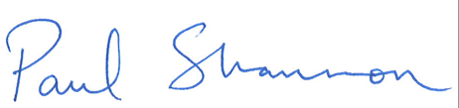 Paul Shannon